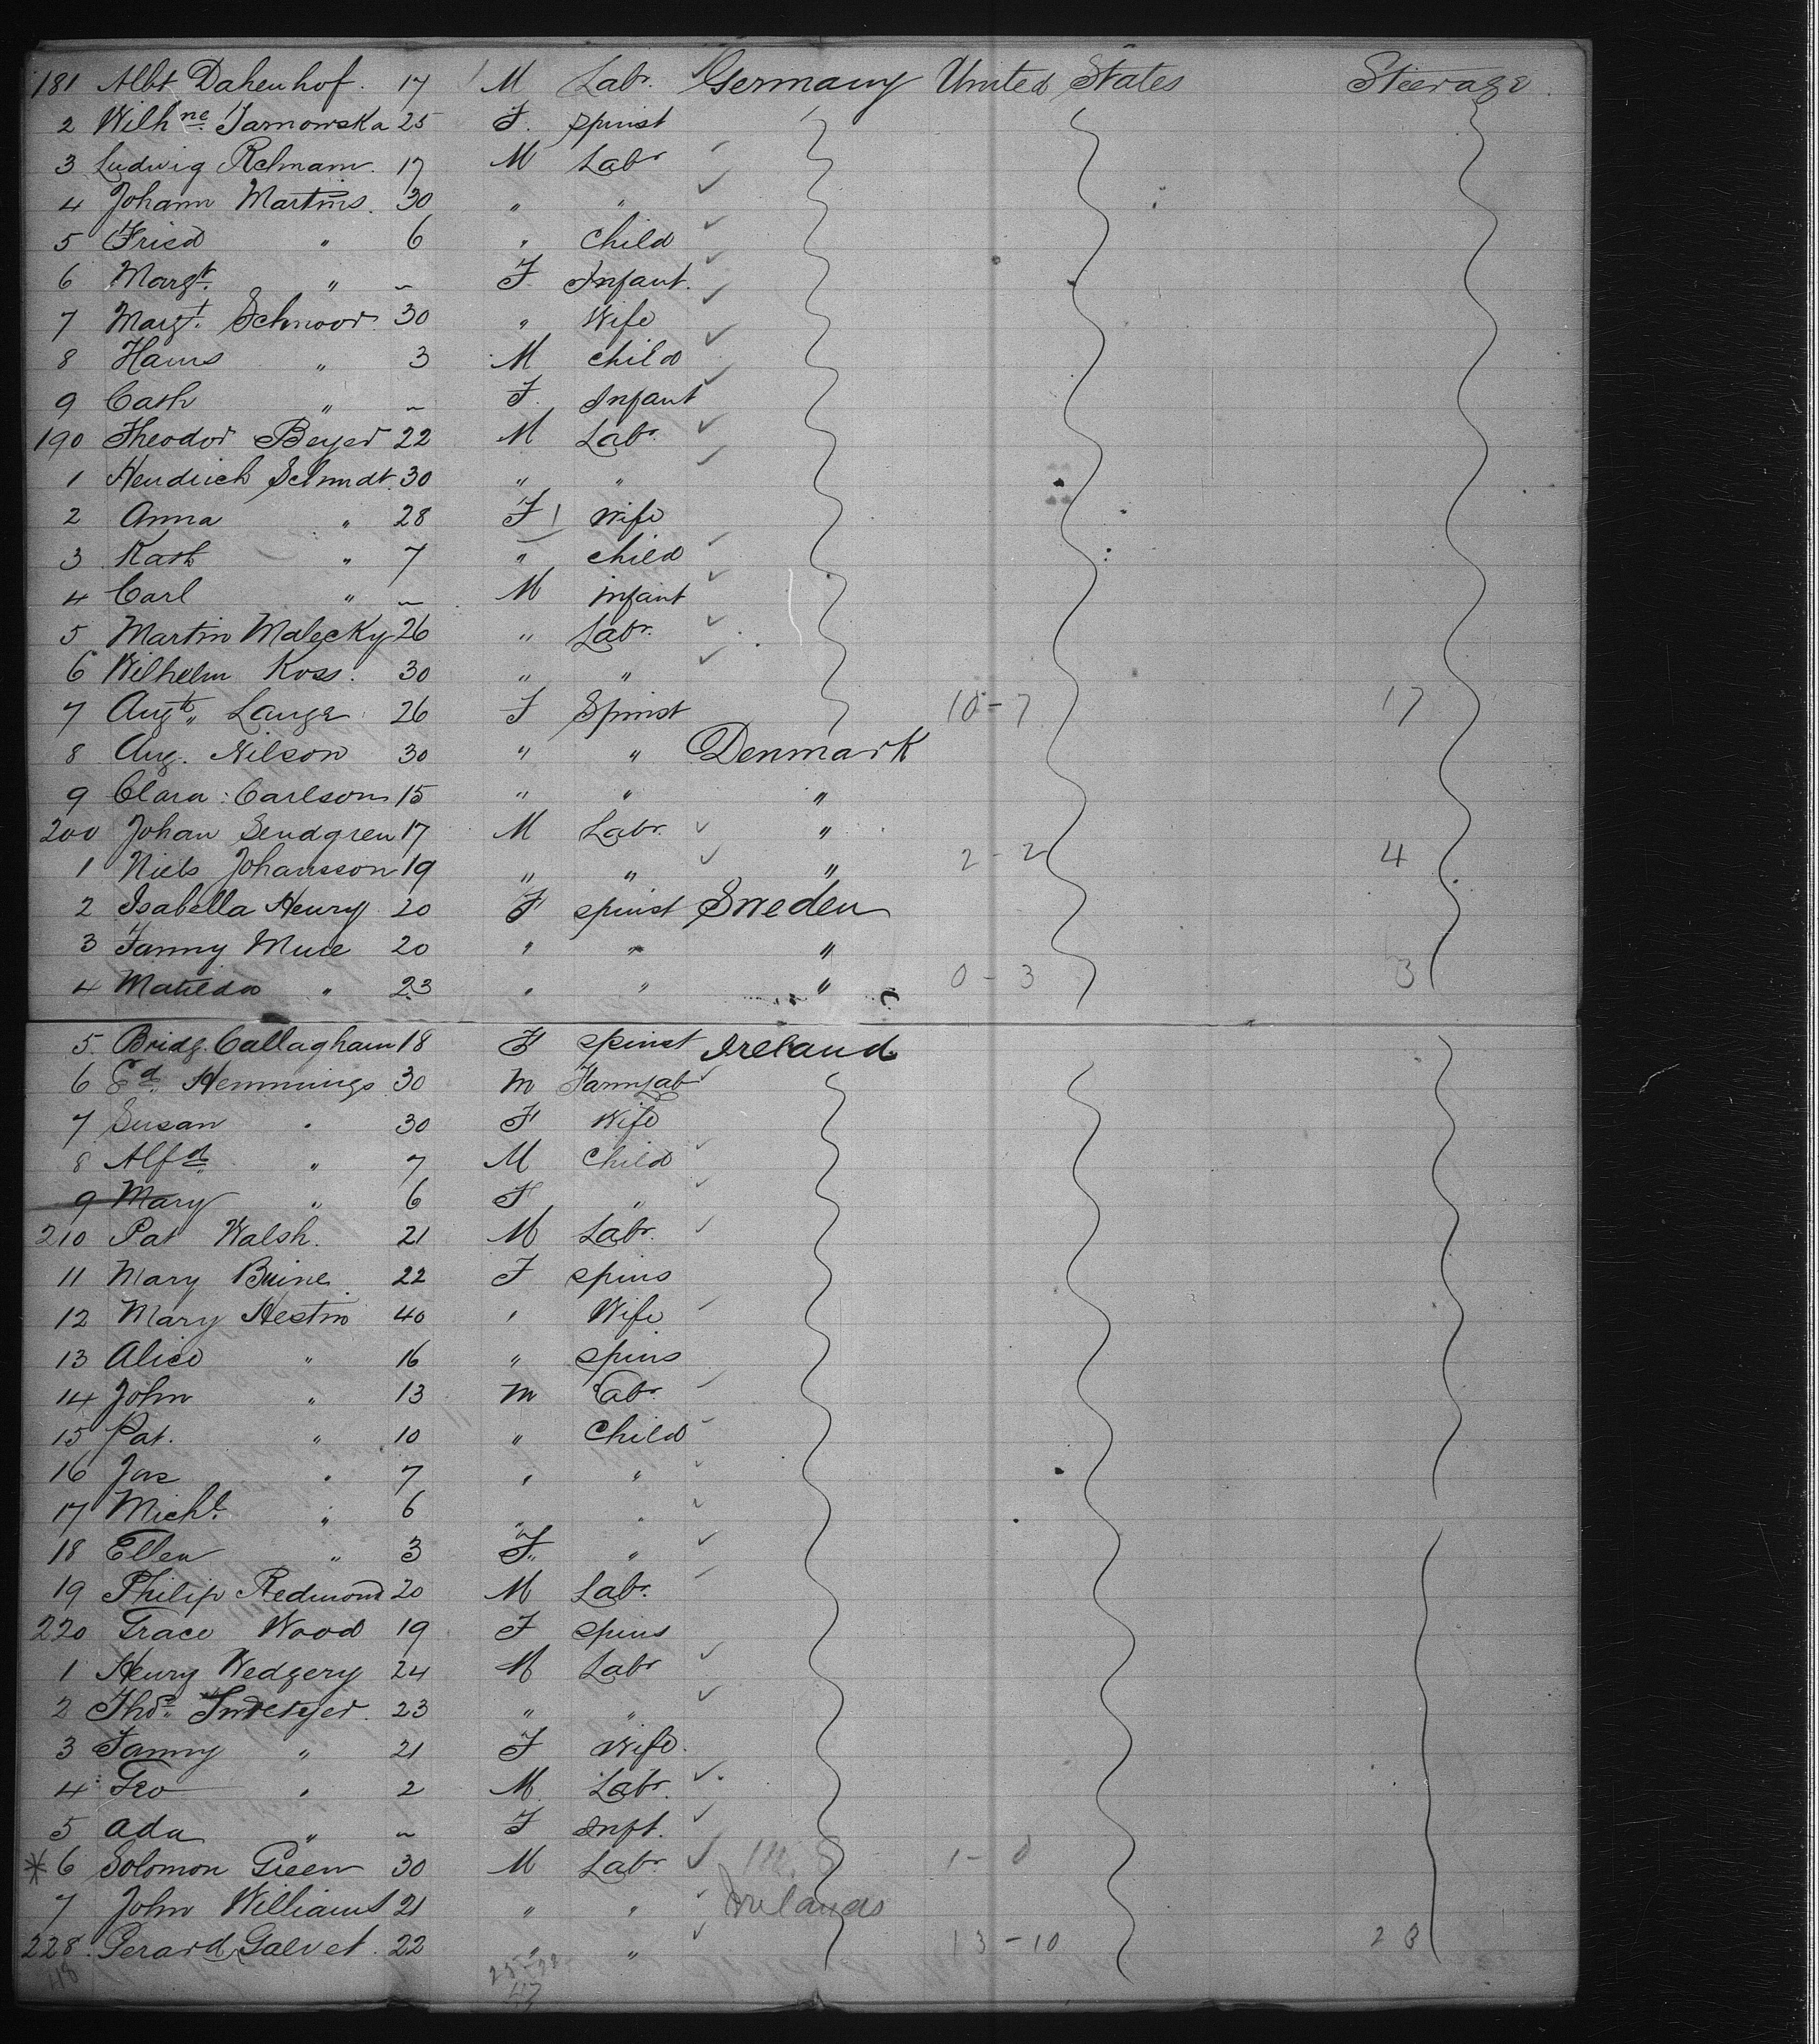 181 Albt Dahenhof. 17 M Labr. Germany United States Steerage.
2 Wilhne. Tarnowska 25 F. Spinst
3 Ludwig Relmann. 17 M Labr
4 Johann Martins. 30 " "
5 Fried " 6 " Child
6 Margt. " ~ F. Infant.
7 Margt. Schnoor 30 " Wife
8 Hans " 3 M child
9 Cath " ~ F. Infant
190 Theodor Beyer 22 M Labr.
1 Hendrich Schmdt. 30 " "
2 Anna " 28 F Wife
3 Kath " 7 " child
4 Carl " ~ M infant
5 Martin Malecky 26 " Labr.
6 Wilhelm Koss. 30 " "
7 Augte. Lange 26 F Spinst 10-7 17
8 Aug. Nilson 30 " " Denmark
9 Clara Carlson 15 " " "
200 Johan Sendgren 17 M Labr. "
1 Niels Johansson 19 " " " 2-2 4
2 Isabella Henry 20 F spinst Sweden
3 Fanny Mure 20 " " "
4 Matilda " 23 " " " 0-3 3
5. Bridg. Callaghan 18 F spinst Ireland.
6 Ed. Hemmings 30 M Farm Lab
7 Susan " 30 F Wife
8 Alfd. " 7 M Child
9 Mary " 6 F "
210 Pat Walsh. 21 M Labr.
11 Mary Buine. 22 F spins
12 Mary Hestin 40 " Wife
13 Alice " 16 " spins
14 John " 13 M Labr.
15 Pat. " 10 " Child
16 Jas " 7 " "
17 Michl. " 6 " "
18 Ellen " 3 F. "
19 Philip Redmond 20 M Labr.
220 Grace Wood 19 F spins
1 Henry Wedgery 24 M Labr
2 Thos. 23 " "
3 Fanny " 21 F Wife.
4 Geo " 2 M Labr.
5 Ada " ~ F Inft.
* 6 Solomon Green 30 M Labr. 1-0
7 John Williams 21 " " Irelands
228. Gerard Galvet. 22 " " 13-10 23
48 25-22
47